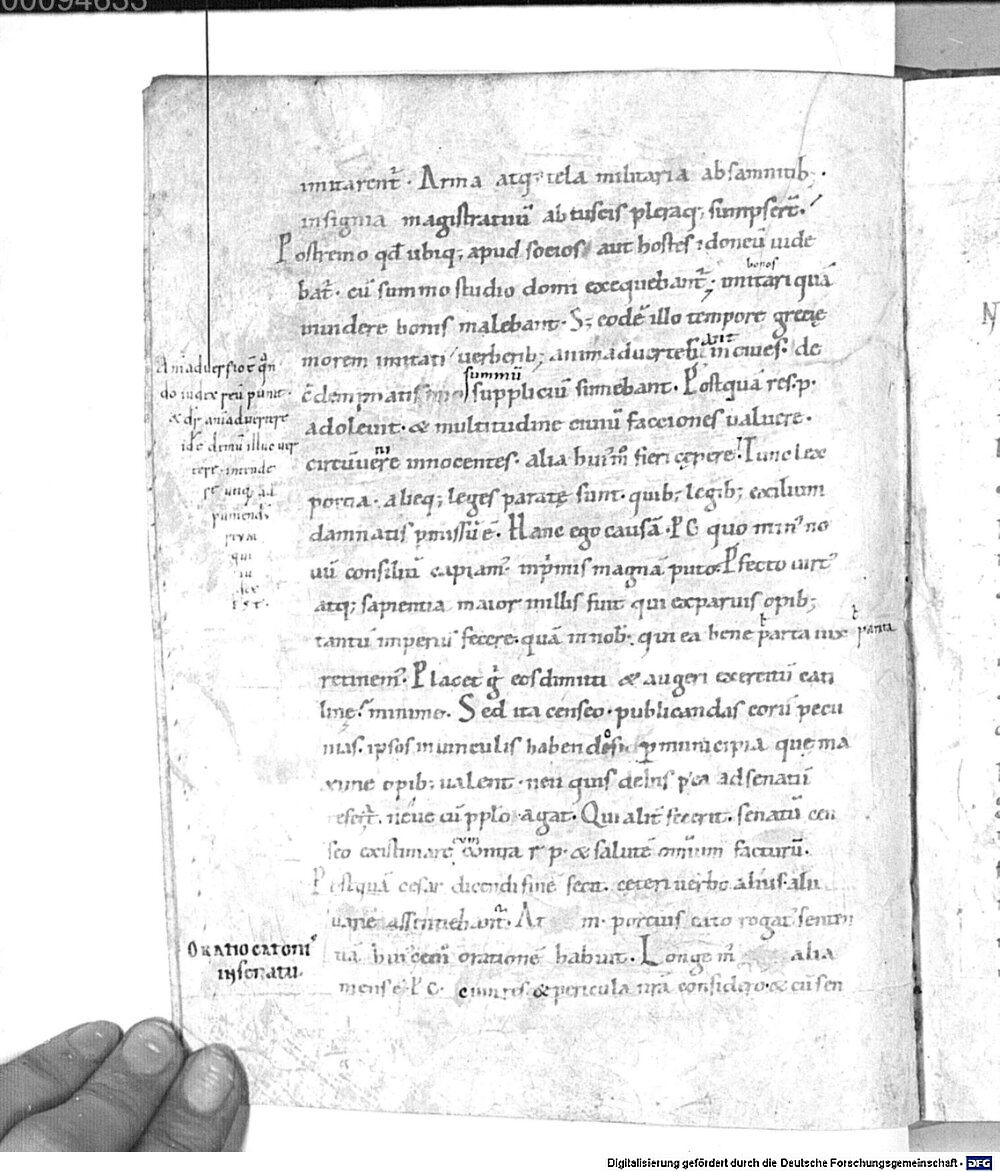 00094633
imitarent̄ · Arma atq; tela militaria ab samnitib; ·
insignia magistratuū ab tuscis pleraq; sumpsert̄.
Postremo qđ ubiq; apud socios aut hostes idoneū uide
bat̄ · cū summo studio domi exequebant̄; imitari quā
bonos
inuidere bonis malebant · S; eodē illo tempore grecię
morem imitati uerberib; animaduerteb in ciues · de
ant
cđempnatis suppliciū sumebant · Postquā res · p ·
summū
adoleuit · & multitudine ciuiū facciones ualuere ·
circūuere innocentes · alia hui᷒m̄ fieri cępere · Tunc lex
ni
porcia · alieq; leges paratę sunt · quib; legib; exilium
damnatis pmissū ē · Hanc ego causā · PC quo min᷒ no
uū consiliū capiam᷒ inp̄mis magnā puto · Pfecto uirt᷒
atq; sapientia maior illis fuit qui ex paruis opib;
tantū imperiū fecere · quā in nob · qui ea bene parta uix
parta
retinem᷒ · Placet g̊ eos dimitti & augeri exercitū cati
line · minime · Sed ita censeo · publicandas eorū pecu
nias · ipsos in uinculis habendos p municipia que ma
xime opib; ualent · neu quis de his p ea ad senatū
refert̄ · neue cū pplo agat · Qui alit̄ fecerit · senatū cen
seo existimare contra r̄ p · & salutē omniūm facturū ·
eum
Postquā cesar dicendi finē fecit · ceteri uerbo alius alii
uarie assentiebant̄ · At m · porcius cato rogat᷒ senten
tiā hui᷒cem̄ orationē habuit · Longe m̄ alia
mens ē · P C · cum res & pericula nr̄a considero · & cū sen
Aniaduersio ē qn̄
do iudex reū punit ·
& dr̄ aniaduertere
id ē animū illuc uer
tere · intende
ad
puniendū
qui
Oratio catonis
in senatu ·
Digitalisierung gefördert durch die Deutsche Forschungsgemeinschaft - DFG